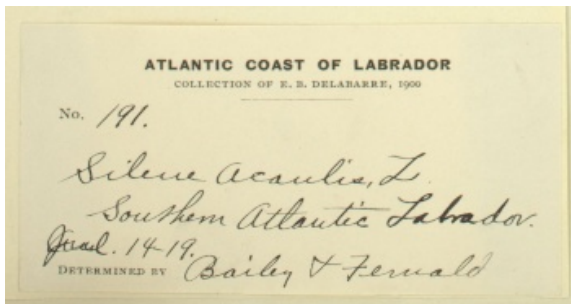 ATLANTIC COAST OF LABRADOR
COLLECTION OF E. B. DELABARRE, 1900
No. 191.
Silene Acaulis, L.
Southern Atlantic Labrador.
14-19.
DETERMINED BY Bailey & Fernald